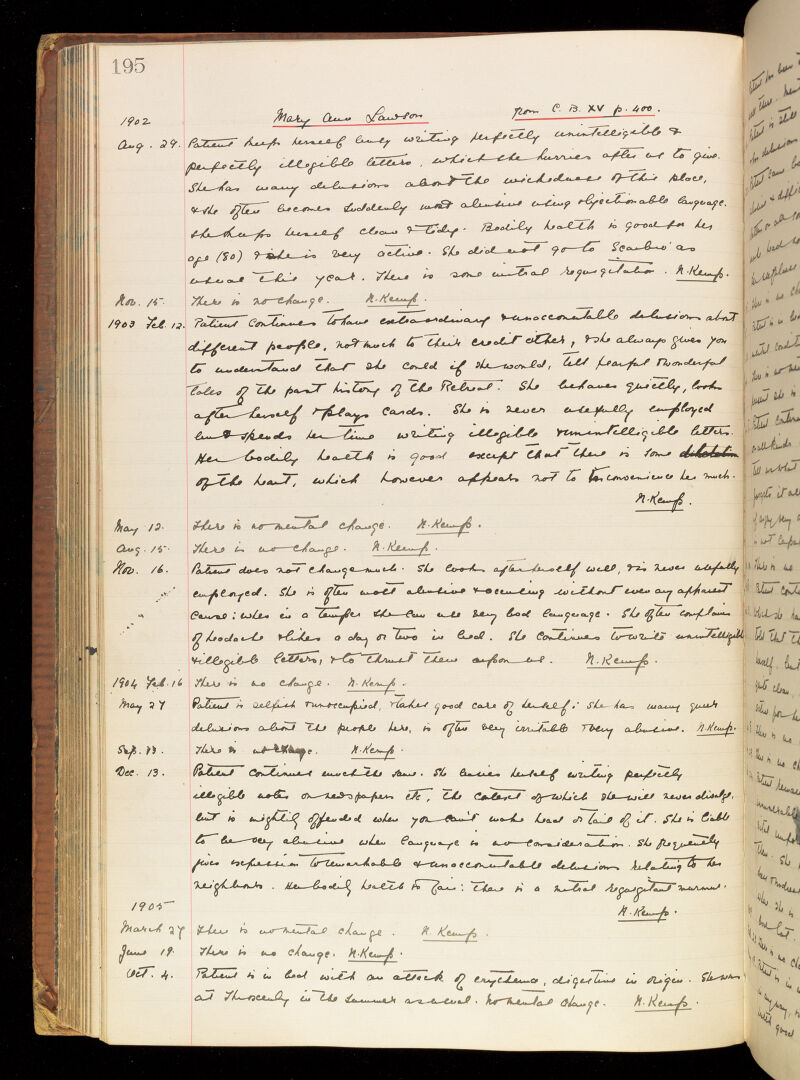 195
1902 Mary Ann Lawson from C. B. XV p. 400.
Aug. 29. Patient keeps herself busy writing perfectly unintelligible &
perfectly illegible letters, which she hurries after us to give.
She has many delusions about the wickedness of this place,
& she often becomes suddenly most abusive using objectionable language.
She keeps herself clean & tidy. Bodily health is good for her
age (80) & she is very active. She did not go to Scarbro' as
usual this year. There is some mitral regurgitation. N. Kemp.
Nov. 15. There is no change. N. Kemp.
1903 Feb. 12. Patient continues to have extraordinary & unaccountable delusions about
different people, not much to their credit either, & she always gives you
to understand that she could if she would, tell fearful & wonderful
tales of the past history of the Retreat. She behaves quietly, looks
after herself & plays cards. She is never usefully employed
but spends her time writing illegible & unintelligible letters.
Her bodily health is good except that there is some
of the heart, which however appears not to inconvenience her much.
N. Kemp.
May 12. There is no mental change. N. Kemp.
Aug. 15. There is no change. N. Kemp.
Nov. 16. Patient does not change much. She looks after herself well, & is never usefully
employed. She is often most abusive & accusing without even any apparent
cause: when in a temper she can use very bad language. She often complains
of headache & likes a day or two in bed. She continues to write unintelligible
& illegible letters, & to thrust them upon us. N. Kemp.
1904 Feb. 16 There is no change. N. Kemp.
May 27 Patient is selfish & unoccupied, & takes good care of herself: she has many queer
delusions about the people here, is often very irritable & very abusive. N. Kemp.
Sep. 13. There is no change. N. Kemp.
Dec. 13. Patient continues much the same. She busies herself writing perfectly
illegible notes on newspapers etc, the context of which she will never divulge,
but is mightily offended when you can't make head or tail of it. She is liable
to be very abusive when language is no consideration. She frequently
gives expression to remarkable & unaccountable delusions relating to her
neighbours. Her bodily health is fair: there is a mitral regurgitant murmur.
N. Kemp.
1905
March 27 There is no mental change. N. Kemp.
June 19. There is no change. N. Kemp.
Oct. 4. Patient is in bed with an attack of erythema, digestive in origin. She was
at Throxenby in the summer as usual. No mental change. N. Kemp.